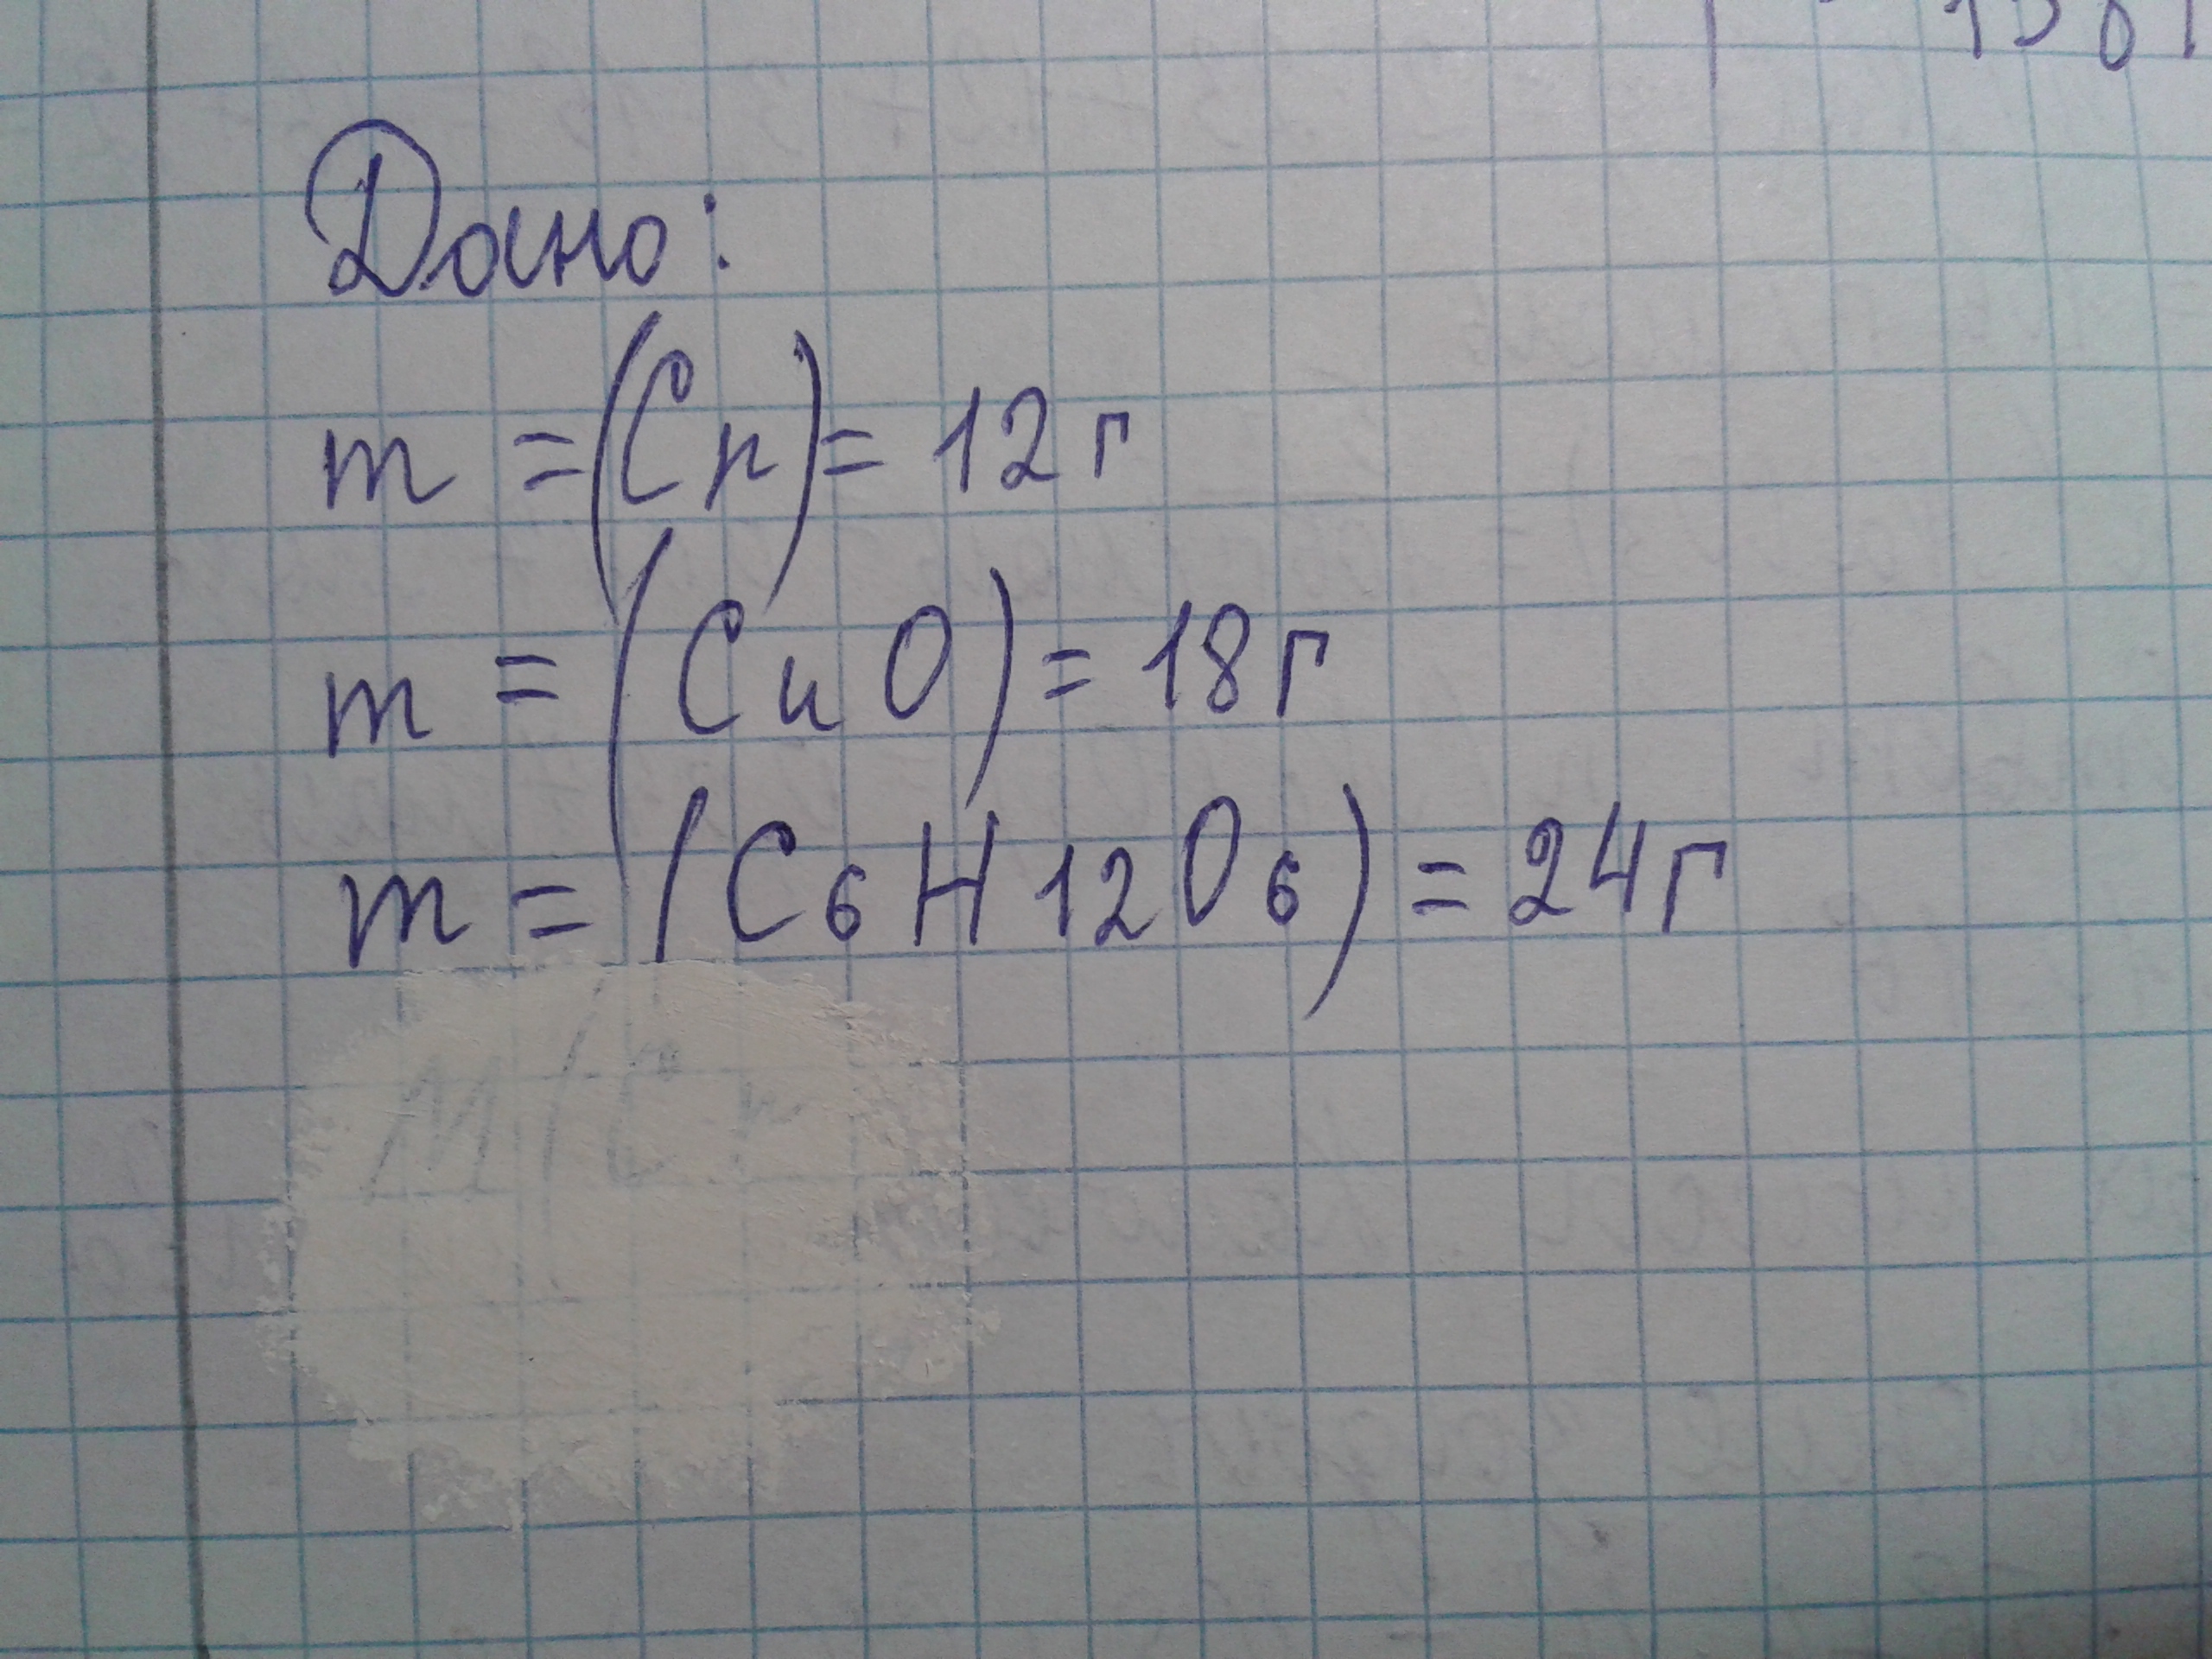 Дано:
m = (Cr) = 12 г
m = (CuO) = 18 г
m = (C6H12O6) = 24 г